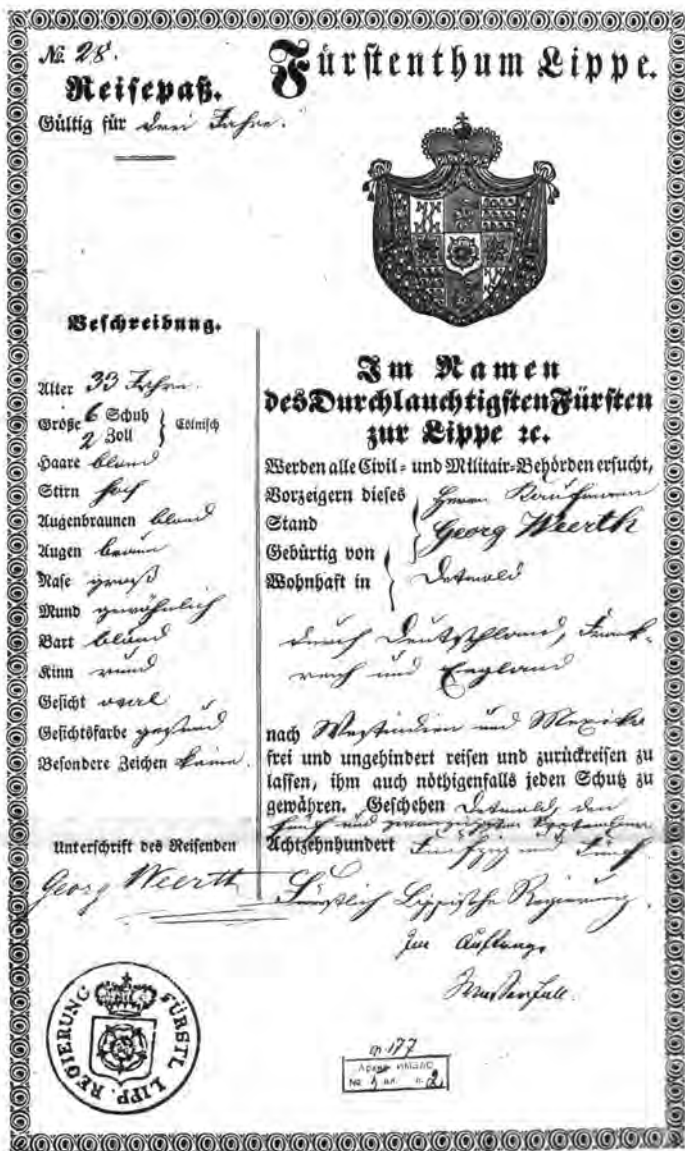 No. 28.
Reisepaß.
Gültig für drei Jahre.
Fürstenthum Lippe.
Beschreibung.
Alter 33 Jahre.
Größe 6 Schuh
2 Zoll } Cölnisch
Haare blond
Stirn hoch
Augenbraunen blond
Augen braun
Nase groß
Mund gewöhnlich
Bart blond
Kinn rund
Gesicht oval
Gesichtsfarbe gesund
Besondere Zeichen keine.
Unterschrift des Reisenden
Georg Weerth
Im Namen
des Durchlauchtigsten Fürsten
zur Lippe ꝛc.
Werden alle Civil- und Militair-Behörden ersucht,
Vorzeigern dieses Herrn Kaufmann
Stand Georg Weerth
Gebürtig von
Wohnhaft in Detmold
durch Deutschland, Frank-
reich und England
nach Westindien und Mexiko
frei und ungehindert reisen und zurückreisen zu
lassen, ihm auch nöthigenfalls jeden Schutz zu
gewähren. Geschehen Detmold, den
fünf und zwanzigsten September
Achtzehnhundert Fünfzig und Fünf.
Fürstlich Lippische Regierung.
Im Auftrage
FÜRSTL. LIPP. REGIERUNG
177
№